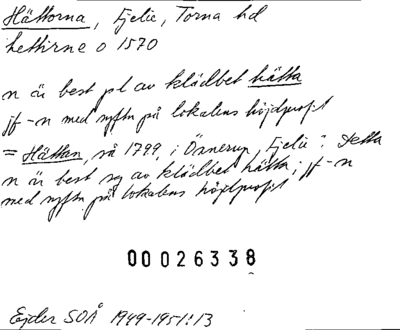 Hättorna, Fjelie, Torna hd
hettirne o 1570
n är best pl av klädbet hätta
jf -n med syftn på lokalens höjdprofil
= Hättan, så 1799, i Önnerup, Fjelie? Detta
n är best sg av klädbet hätta; jf -n
med syftn på lokalens höjdprofil
00026338
Ejder SOÅ 1949-1951:13